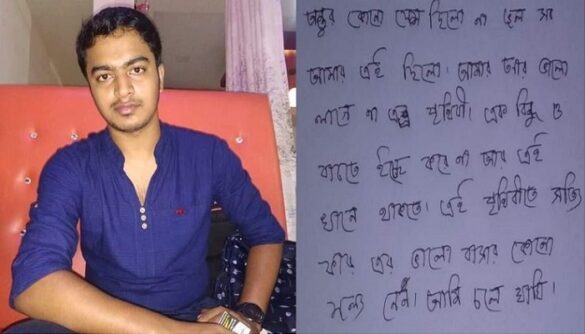 অন্তুর কোনো দোষ ছিলো না ভুল সব
আমার এই ছিলো। আমার আর ভালো
লাগে না এই পৃথিবী। এক বিন্দু ও
বাচতে ইচ্ছে করে না আর এই
খানে থাকতে। এই পৃথিবীতে সত্যি
কার এর ভালো বাসার কোনো
মূল্য নেই। আমি চলে যাবি।